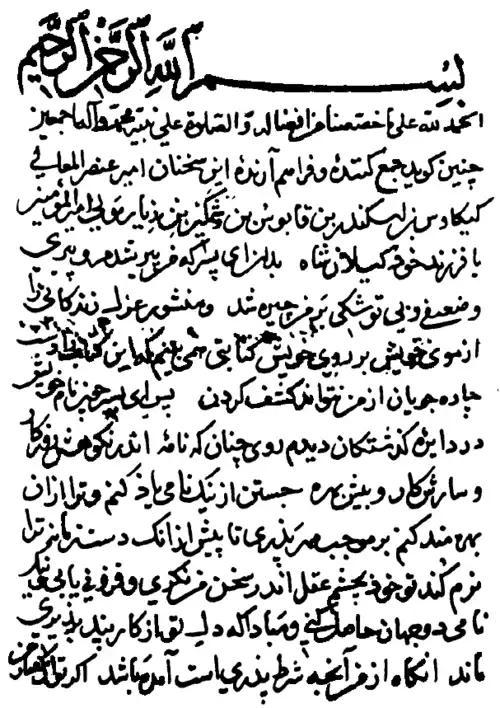 بسم الله الرحمن الرحیم
الحمد لله علی ما اختصنا من افضاله و الصلوة علی نبیه محمد و آله اجمعین
چنین کوید جمع کننده و فراهم آرنده این سخنان امیر عنصر المعالی
کیکاوس بن اسکندر بن قابوس بن وشمگیر بن زیار مولی امیر المومنین
با فرزند خوذ کیلان شاه بدان ای پسر که من پیر شدم و پیری
و ضعیفی و بی توشکی بر من چیره شد و منشور عزل زندکانی را
از موی خویش بر روی خویش کتابتی همی بینم که این کتابت را دست
چاره جویان از من نتواند کشف کردن پس ای پسر چون من نام خویش
در دایره کذشتکان دیدم روی چنان که نامه اندر نکوهش روزکار
و سازش کار و بیش بهره جستن از نیک نامی یاذ کنم و ترا ازان
بهره مند کنم بر موجب مهر پذری تا پیش از انک دست زمانه ترا
نرم کند تو خوذ بچشم عقل اندر سخن من نکری و فزونی یابی و نیک
نامی دو جهان حاصل کنی و مباذا که دل تو از کار بند پذیری
ماند انکاه از من آنچه شرط پذری است آمده باشد اکر تو از کفتار من